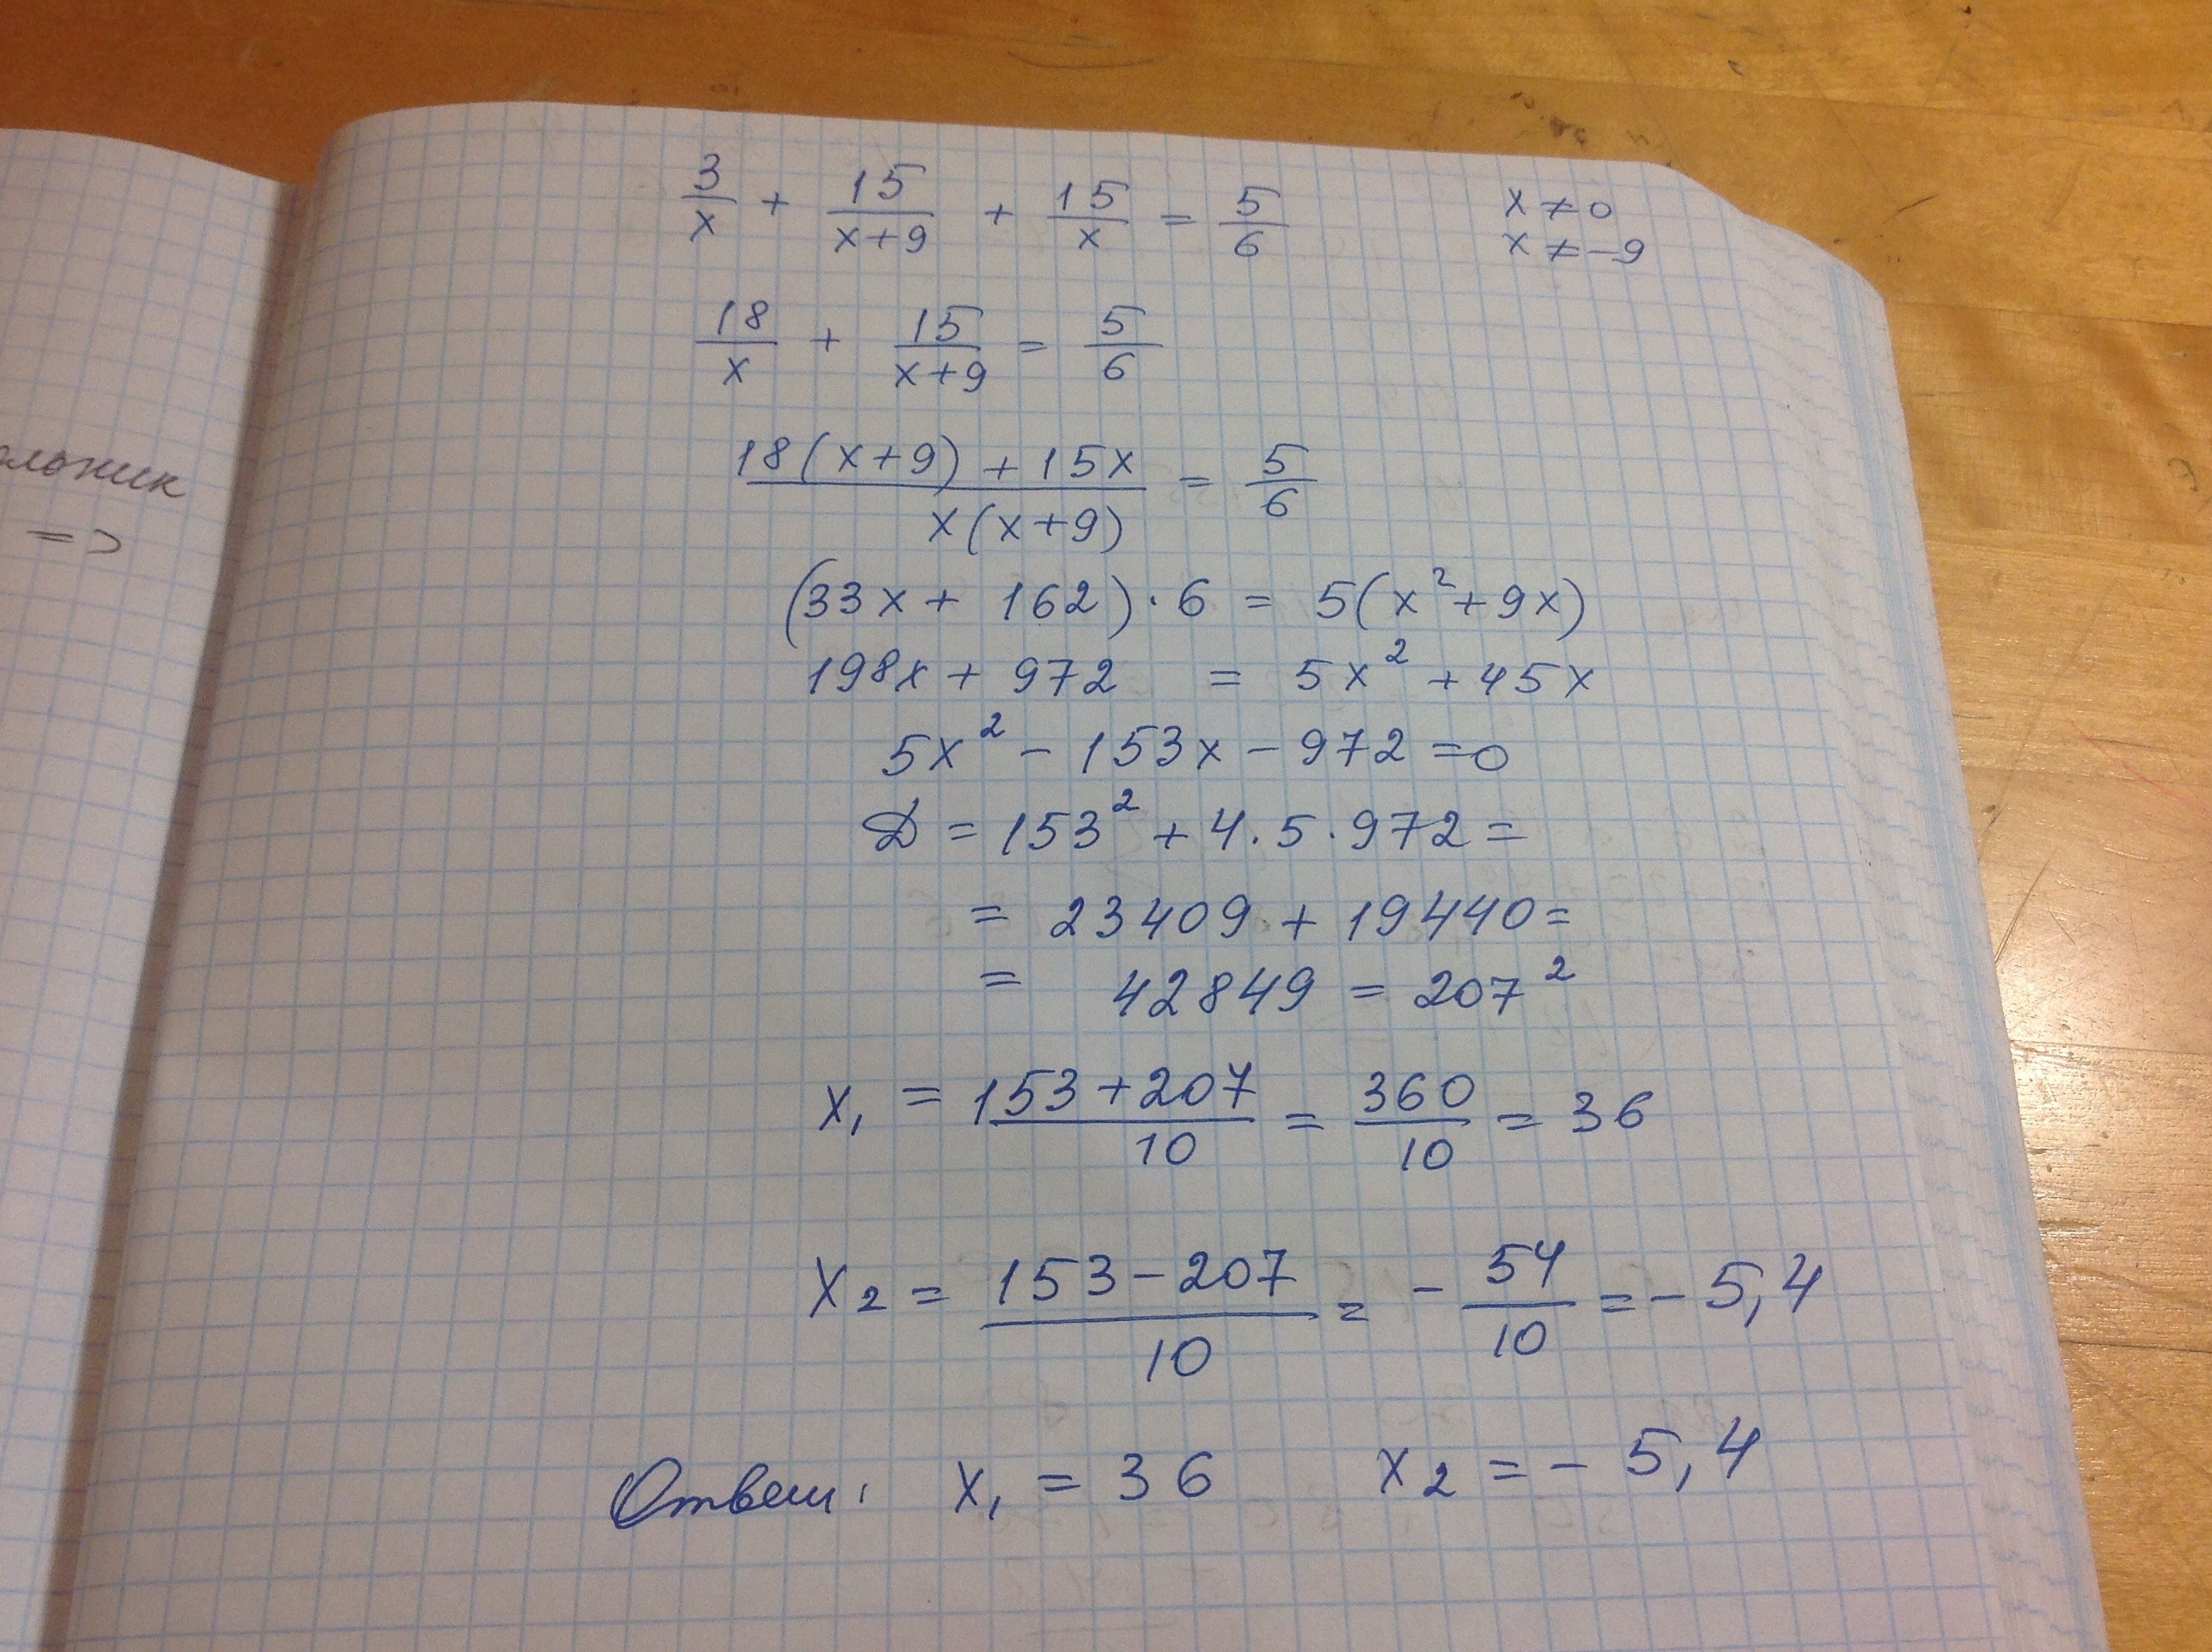 3/x + 15/(x+9) + 15/x = 5/6 x ≠ 0
x ≠ -9
18/x + 15/(x+9) = 5/6
(18(x+9) + 15x)/(x(x+9)) = 5/6
(33x + 162) · 6 = 5(x² + 9x)
198x + 972 = 5x² + 45x
5x² - 153x - 972 = 0
Д = 153² + 4 · 5 · 972 =
= 23409 + 19440 =
= 42849 = 207²
x₁ = (153 + 207)/10 = 360/10 = 36
x₂ = (153 - 207)/10 = - 54/10 = - 5,4
Ответ: x₁ = 36 x₂ = - 5,4
=>